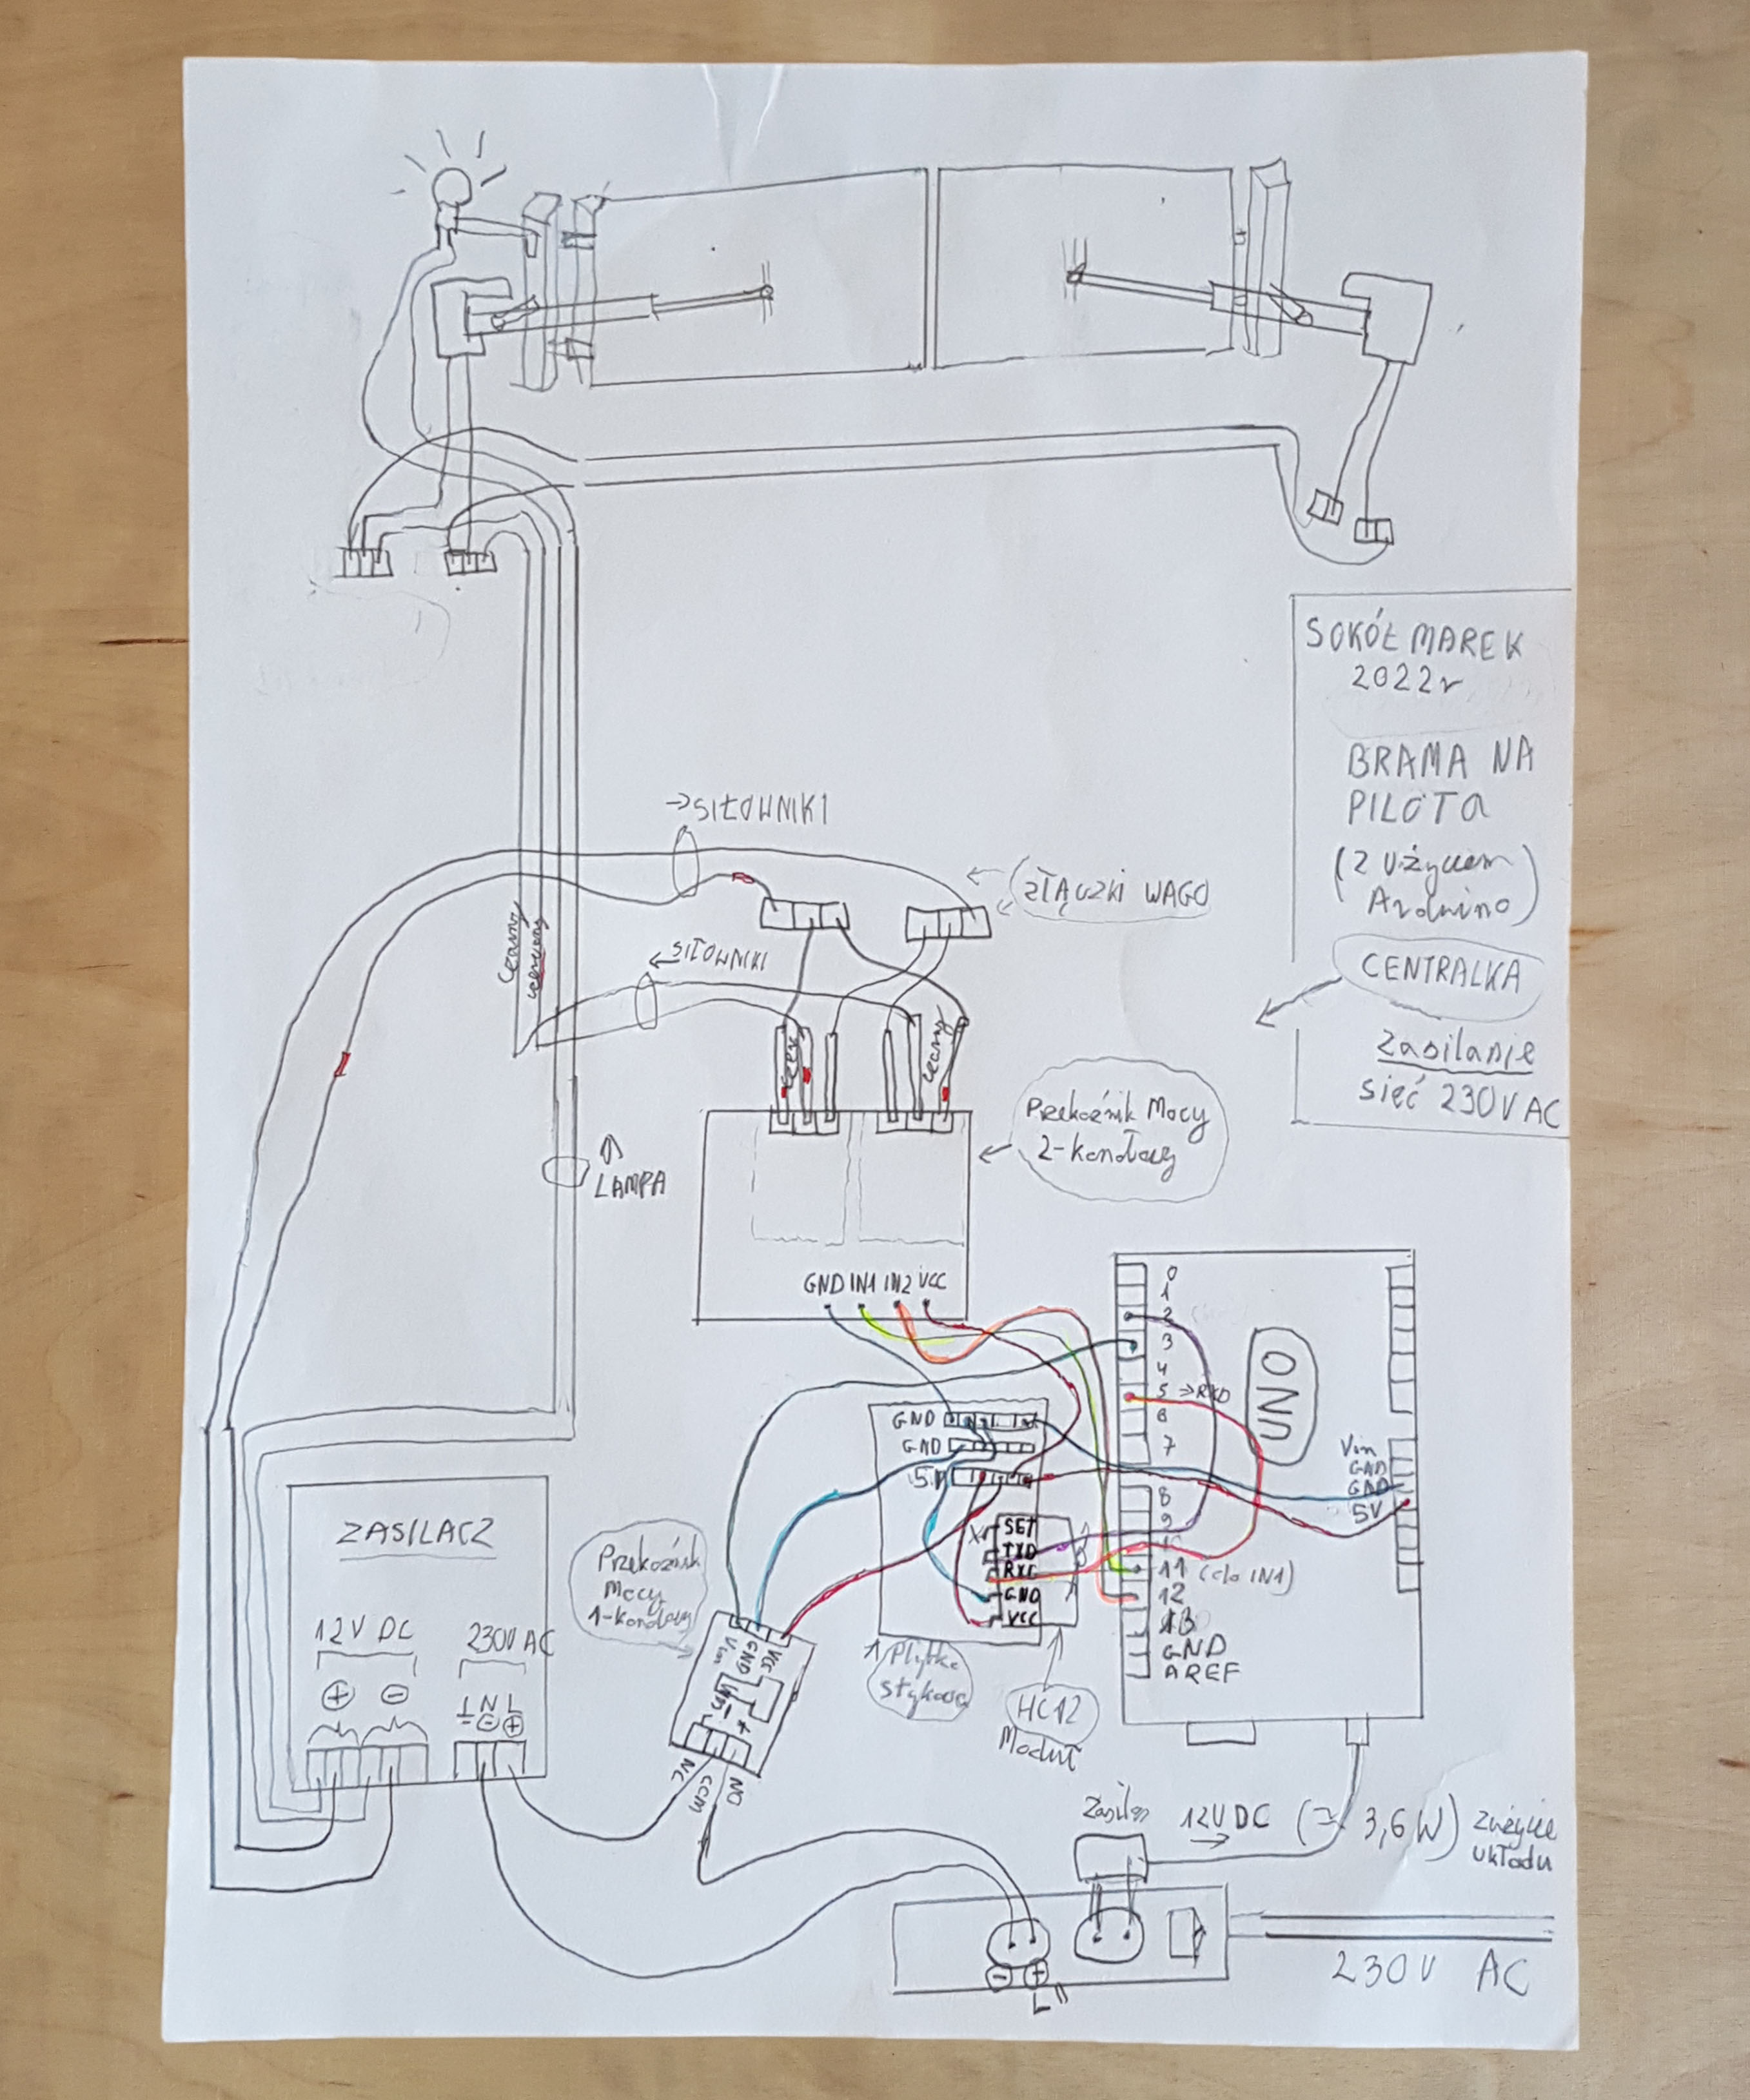 SOKÓŁ MAREK
2022r
BRAMA NA
PILOTA
(z użyciem
Arduino)
CENTRALKA
Zasilanie
sieć 230V AC
→SIŁOWNIKI
ZŁĄCZKI WAGO
←SIŁOWNIKI
czarny
czerwony
czer
czarny
Przekaźnik Mocy
2-kanałowy
LAMPA
GND IN1 IN2 VCC
0
1
2
3
4
5 →RXD
6
7
8
9
10
11 (do IN1)
12
13
GND
AREF
UNO
Vin
GND
GND
5V
GND
GND
5V
SET
TXD
RXD
GND
VCC
Płytka
stykowa
HC12
Moduł
ZASILACZ
12V DC
230V AC
+ -
⏚ N L
- +
Przekaźnik
Mocy
1-kanałowy
GND
VCC
NC
COM
NO
12V DC (≈ 3,6W) zużycie
układu
- +
L
230V AC